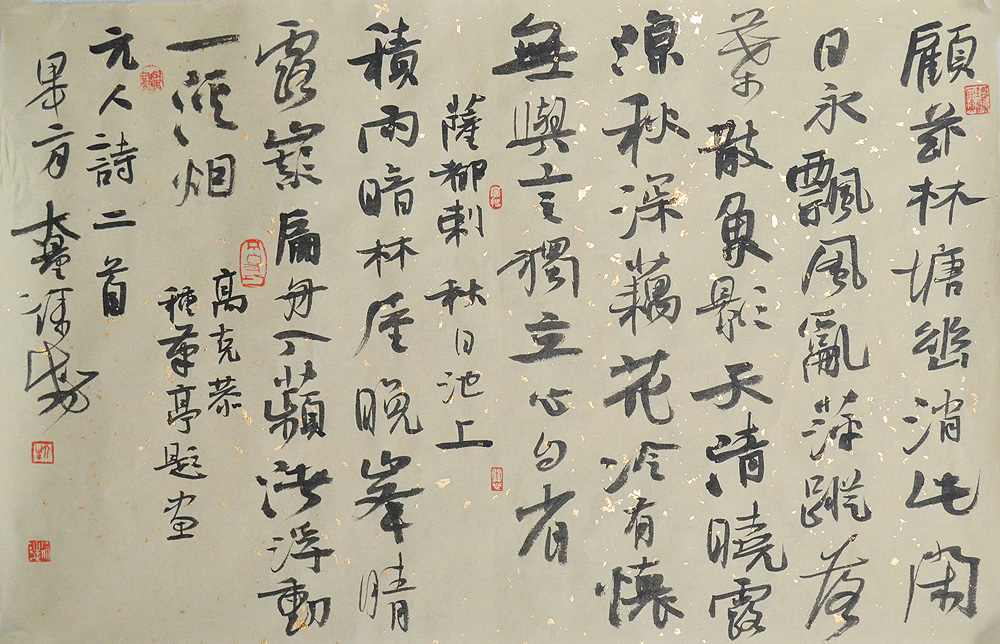 顧茲林塘幽消此閑
日永飄風亂萍蹤落
葉散魚影天清曉露
涼秋深藕花冷有懷
無與言獨立心自省
薩都剌 秋日池上
積雨暗林屋晚峯晴
露巔扁舟入蘋渚浮動
一溪烟
高克恭
種筆亭題畫
元人詩二首